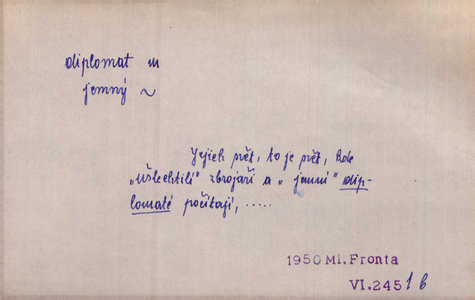 diplomat m
jemný ~
Jejich svět, to je svět, kde
„ušlechtilí" zbrojaři a „jemní" dip-
lomaté počítají, .....
1950 Ml. Fronta
VI. 245 1 b